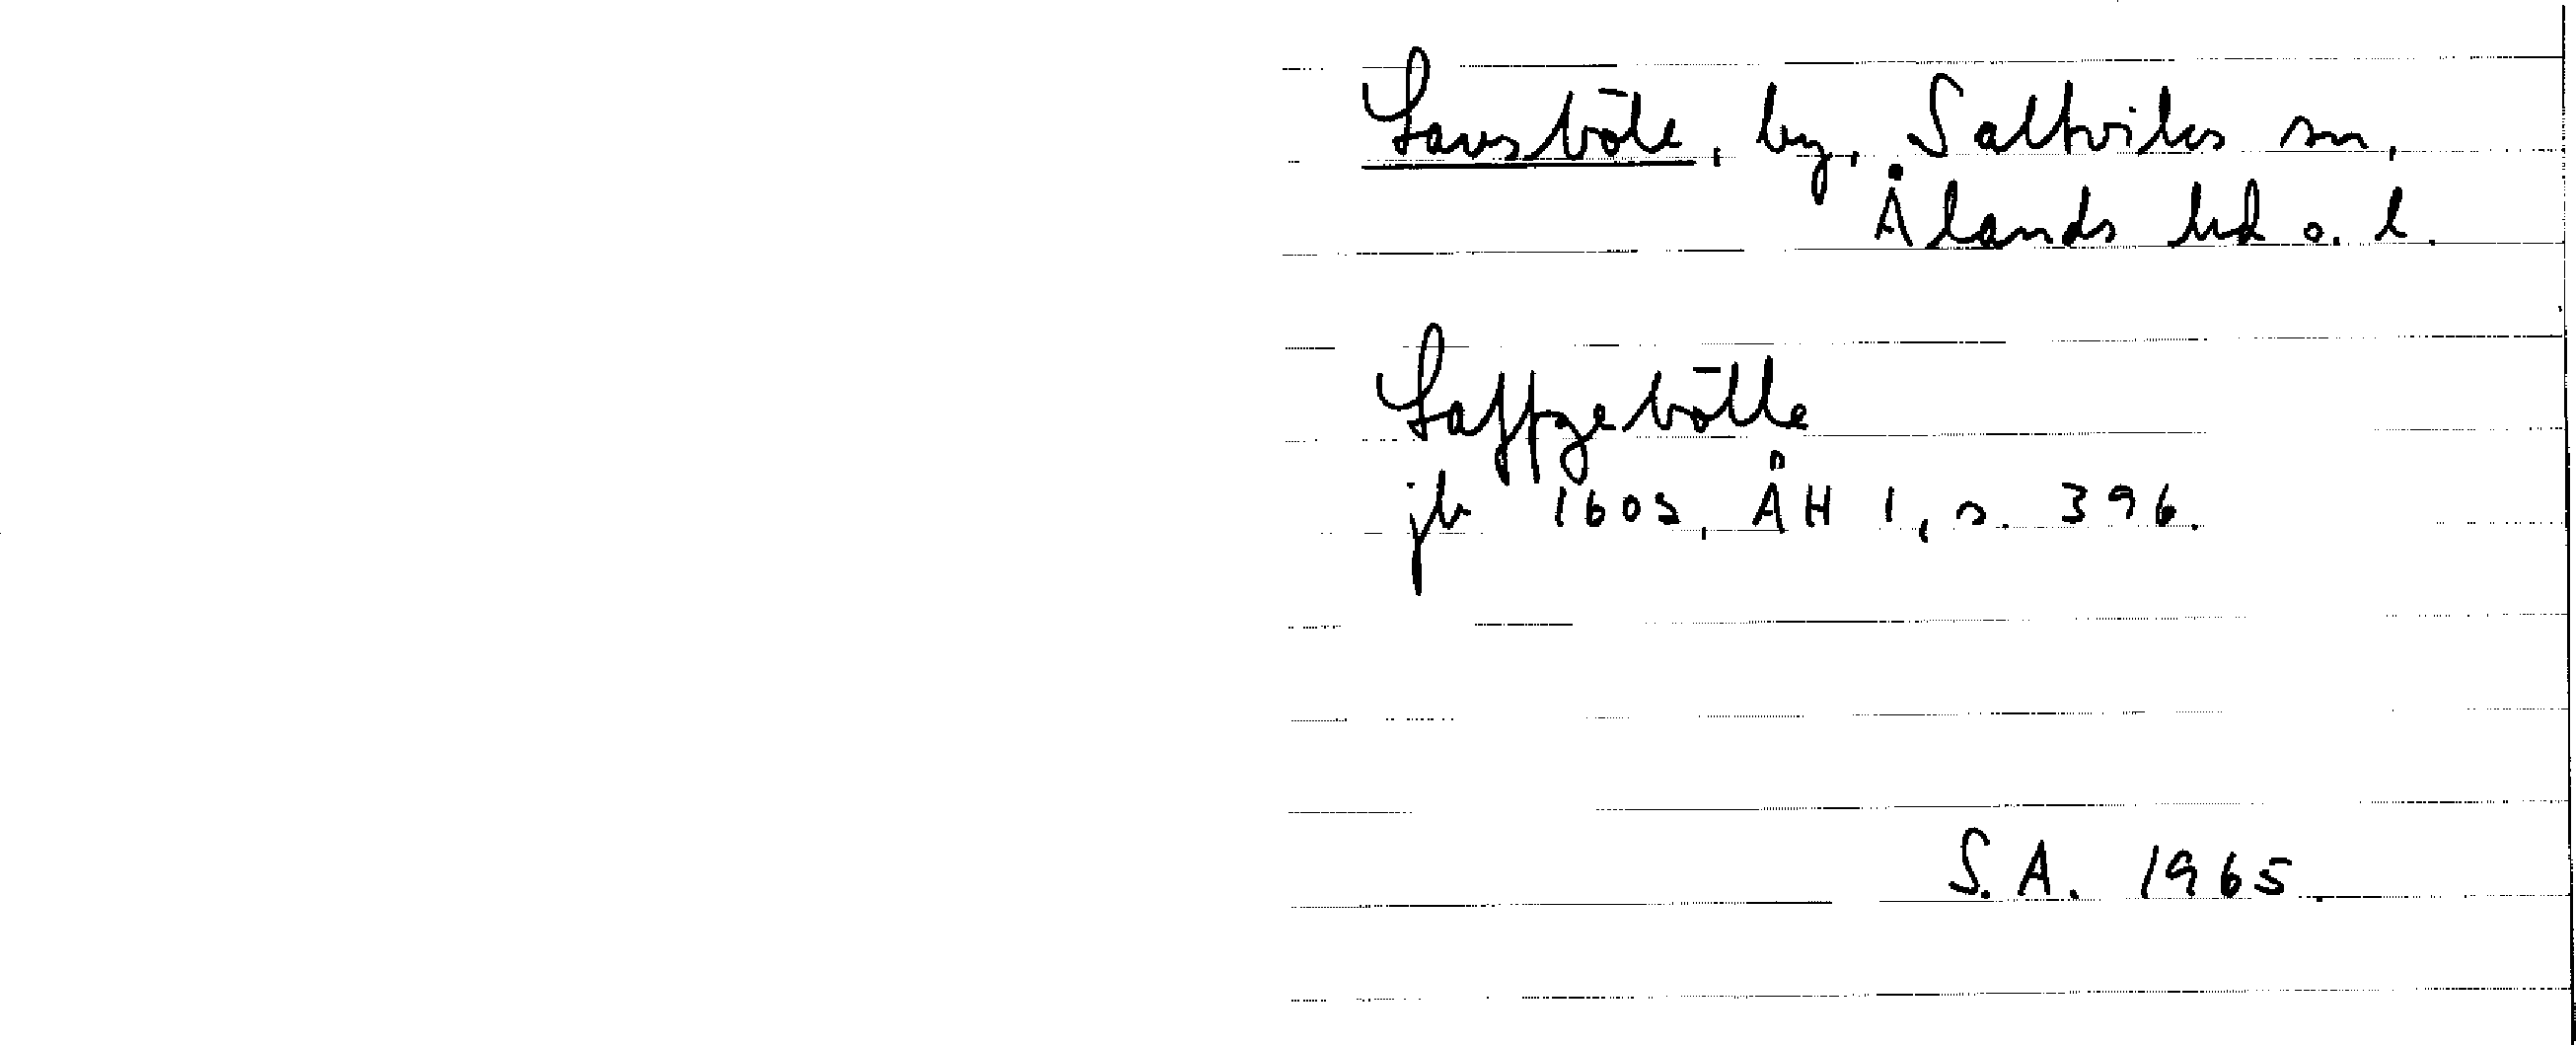 Lavsböle, by, Saltviks sn,
Ålands hd o. l.
Laffzebölle
jb 1602, ÅH 1, s. 396.
S.A. 1965.